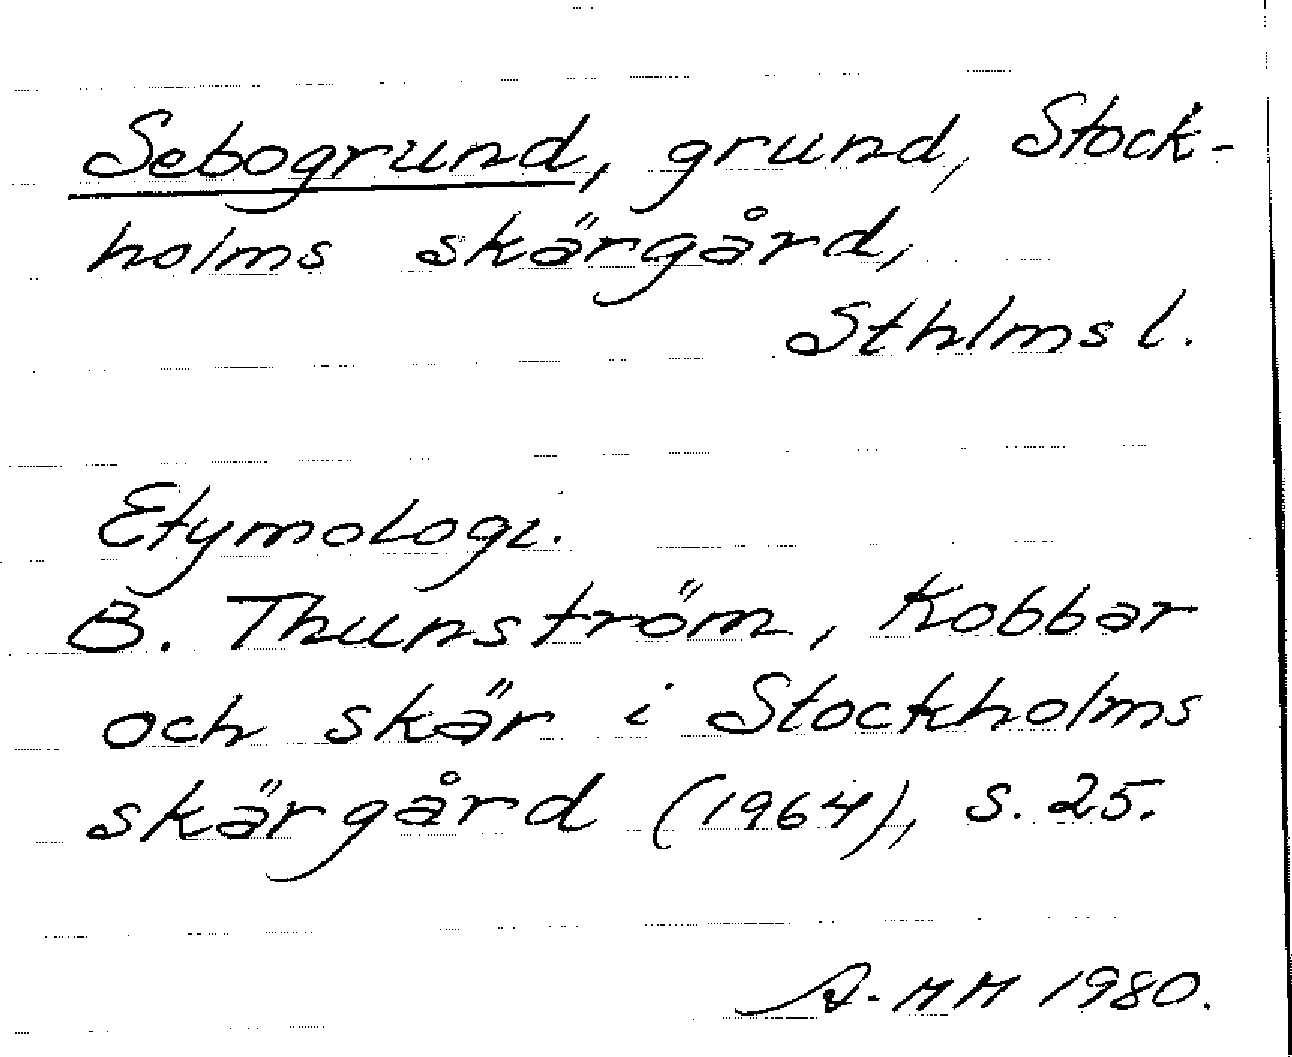 Sebogrund, grund, Stock-
holms skärgård,
Sthlms l.
Etymologi.
B. Thunström, Kobbar
och skär i Stockholms
skärgård (1964), s. 25.
A-MH 1980.